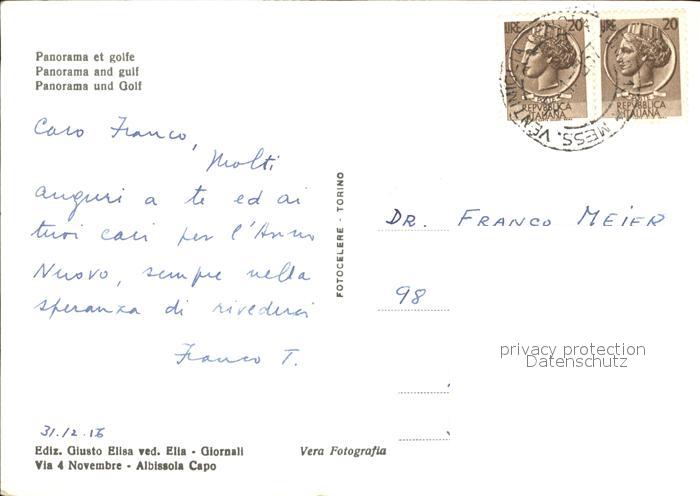 Panorama et golfe
Panorama and gulf
Panorama und Golf
LIRE 20 LIRE 20
REPVBBLICA ITALIANA REPVBBLICA ITALIANA
MESS. VENTIMIGLIA
Caro Franco,
Molti
auguri a te ed ai
tuoi cari per l'Anno
Nuovo, sempre nella
speranza di rivederci
Franco T.
FOTOCELERE - TORINO
DR. FRANCO MEIER
98
privacy protection
Datenschutz
31.12.
Ediz. Giusto Elisa ved. Elia - Giornali
Via 4 Novembre - Albissola Capo
Vera Fotografia